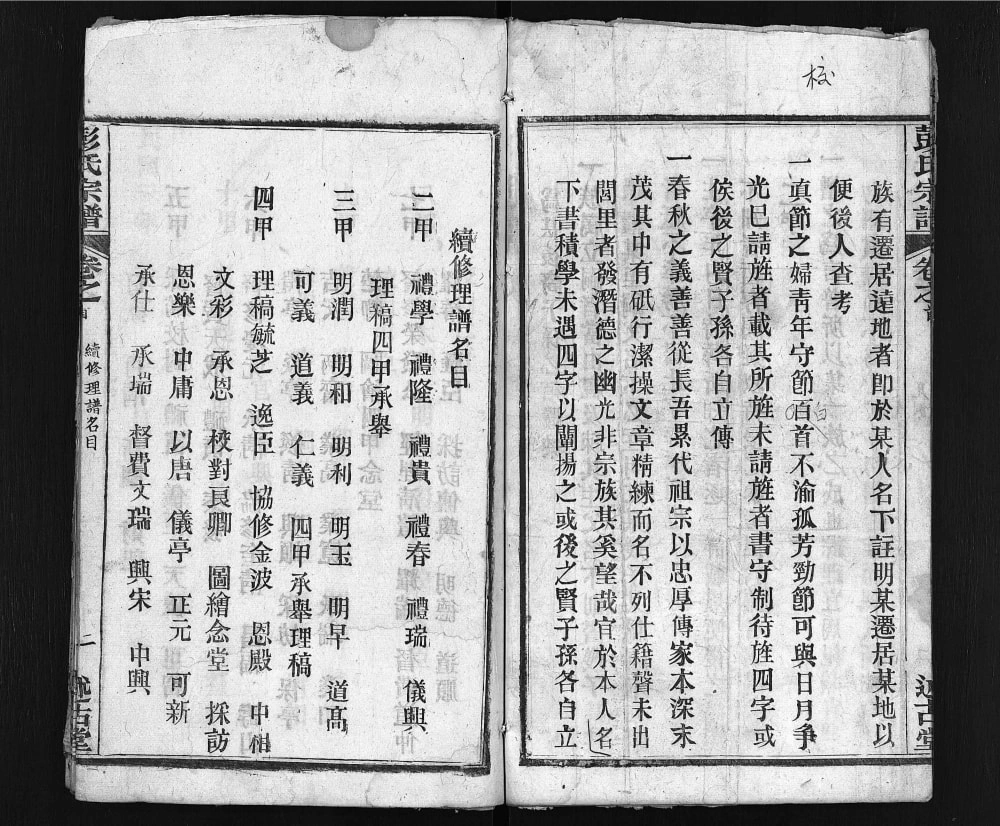 校
彭氏宗譜
卷之首
述古堂
族有遷居遠地者卽於某人名下註明某遷居某地以
便後人查考
一貞節之婦青年守節百首不渝孤芳勁節可與日月爭
白
光已請旌者載其所旌未請旌者書守制待旌四字或
俟後之賢子孫各自立傳
一春秋之義善善從長吾累代祖宗以忠厚傳家本深末
茂其中有砥行潔操文章精練而名不列仕籍聲未出
閭里者發潛德之幽光非宗族其奚望哉宜於本人名
下書積學未遇四字以闡揚之或後之賢子孫各自立
續修理譜名目
二甲 禮學 禮隆 禮貴 禮春 禮瑞 儀興
理稿四甲承舉
三甲 明潤 明和 明利 明玉 明早 道高
可義 道義 仁義 四甲承舉理稿
四甲 理稿毓芝 逸臣 協修金波 恩殿 中相
文彩 承恩 校對良卿 圖繪念堂 採訪
恩樂 中庸 以唐 儀亭 正元 可新
承仕 承瑞 督費文瑞 興宋 中興
彭氏宗譜
卷之首
續修理譜名目
二
述古堂